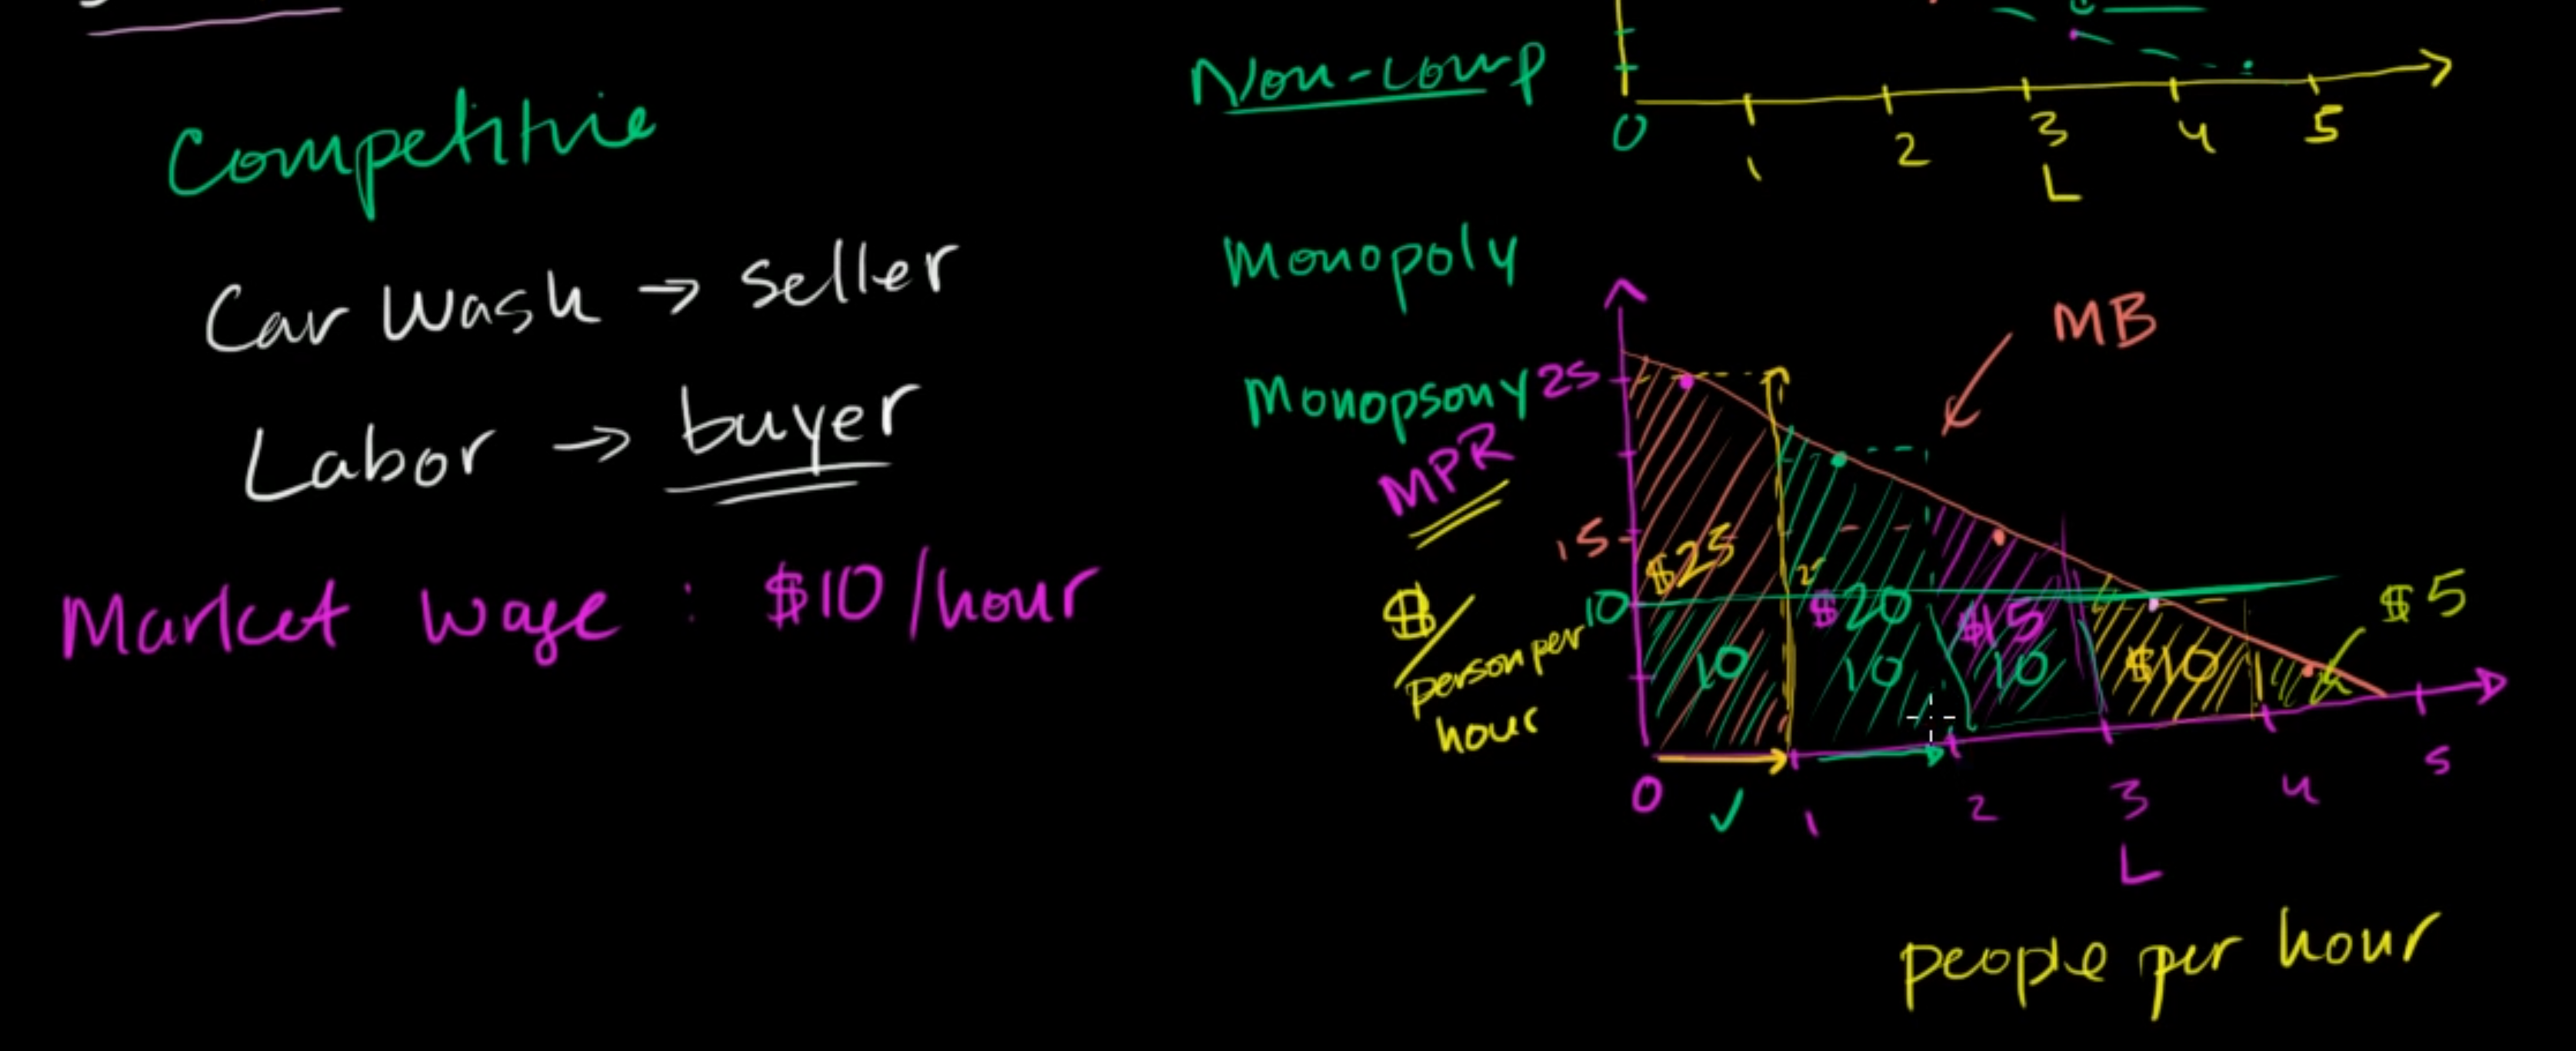 Competitive
Car Wash → seller
Labor → buyer
Market wage : $10/hour
Non-comp
0 1 2 3 4 5
L
Monopoly
Monopsony
MPR
$/
person per
hour
MB
25
15
10
$25
$20
$15
$10
$5
10
10
10
0 1 2 3 4 5
L
people per hour